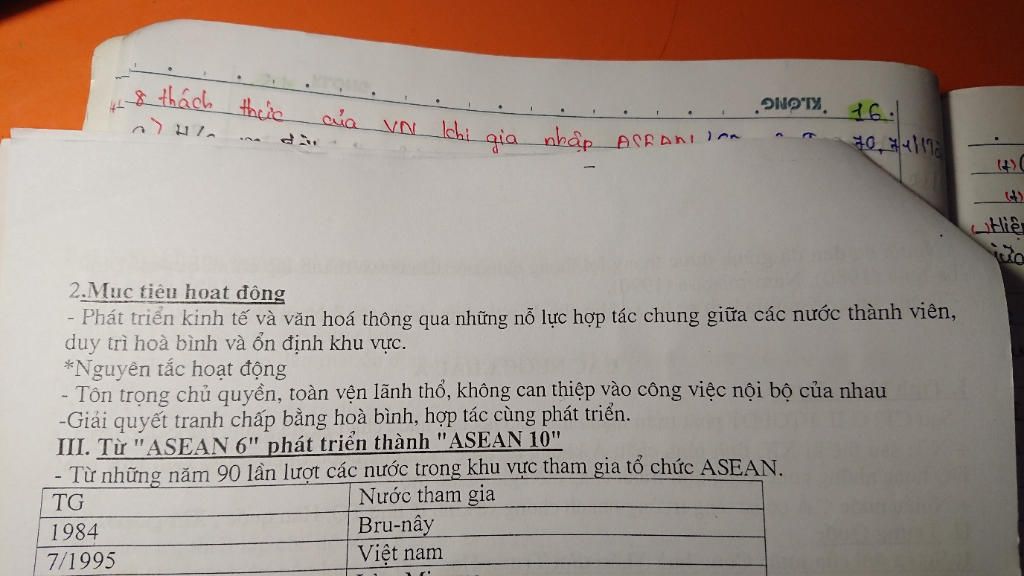 8 thách thức của VN khi gia nhập ASEAN
KLONG
16
2.Mục tiêu hoạt động
- Phát triển kinh tế và văn hoá thông qua những nỗ lực hợp tác chung giữa các nước thành viên,
duy trì hoà bình và ổn định khu vực.
*Nguyên tắc hoạt động
- Tôn trọng chủ quyền, toàn vẹn lãnh thổ, không can thiệp vào công việc nội bộ của nhau
-Giải quyết tranh chấp bằng hoà bình, hợp tác cùng phát triển.
III. Từ "ASEAN 6" phát triển thành "ASEAN 10"
- Từ những năm 90 lần lượt các nước trong khu vực tham gia tổ chức ASEAN.
TG Nước tham gia
1984 Bru-nây
7/1995 Việt nam